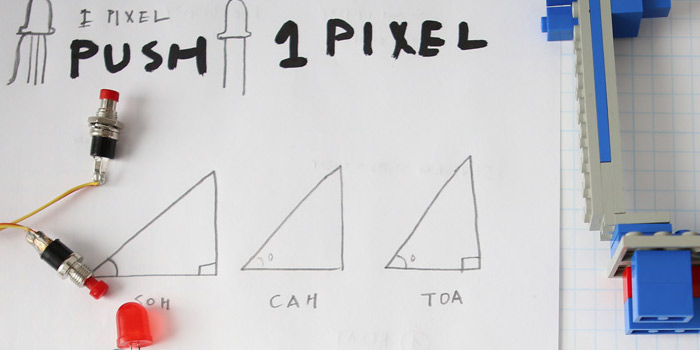 1 PIXEL
PUSH 1 PIXEL
SOH CAH TOA